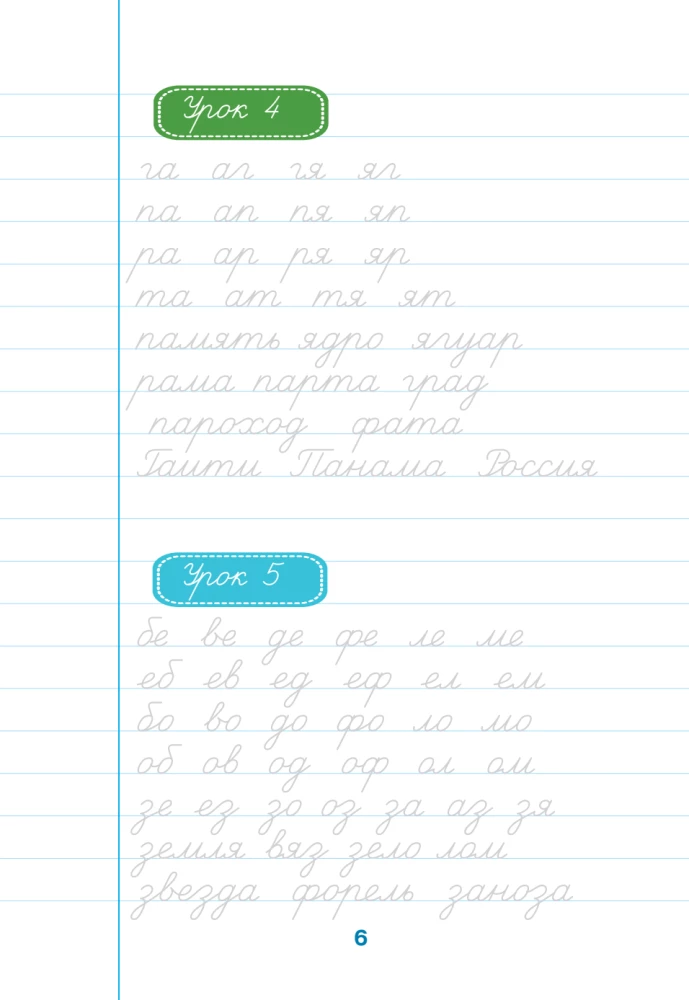 Урок 4
га аг гя яг
па ап пя яп
ра ар ря яр
та ат тя ят
память ядро ягуар
рама парта град
пароход фата
Гаити Панама Россия
Урок 5
бе ве де фе ле ме
еб ев ед еф ел ем
бо во до фо ло мо
об ов од оф ол ом
зе ез зо оз за аз зя
земля вяз зело лом
звезда форель заноза
6